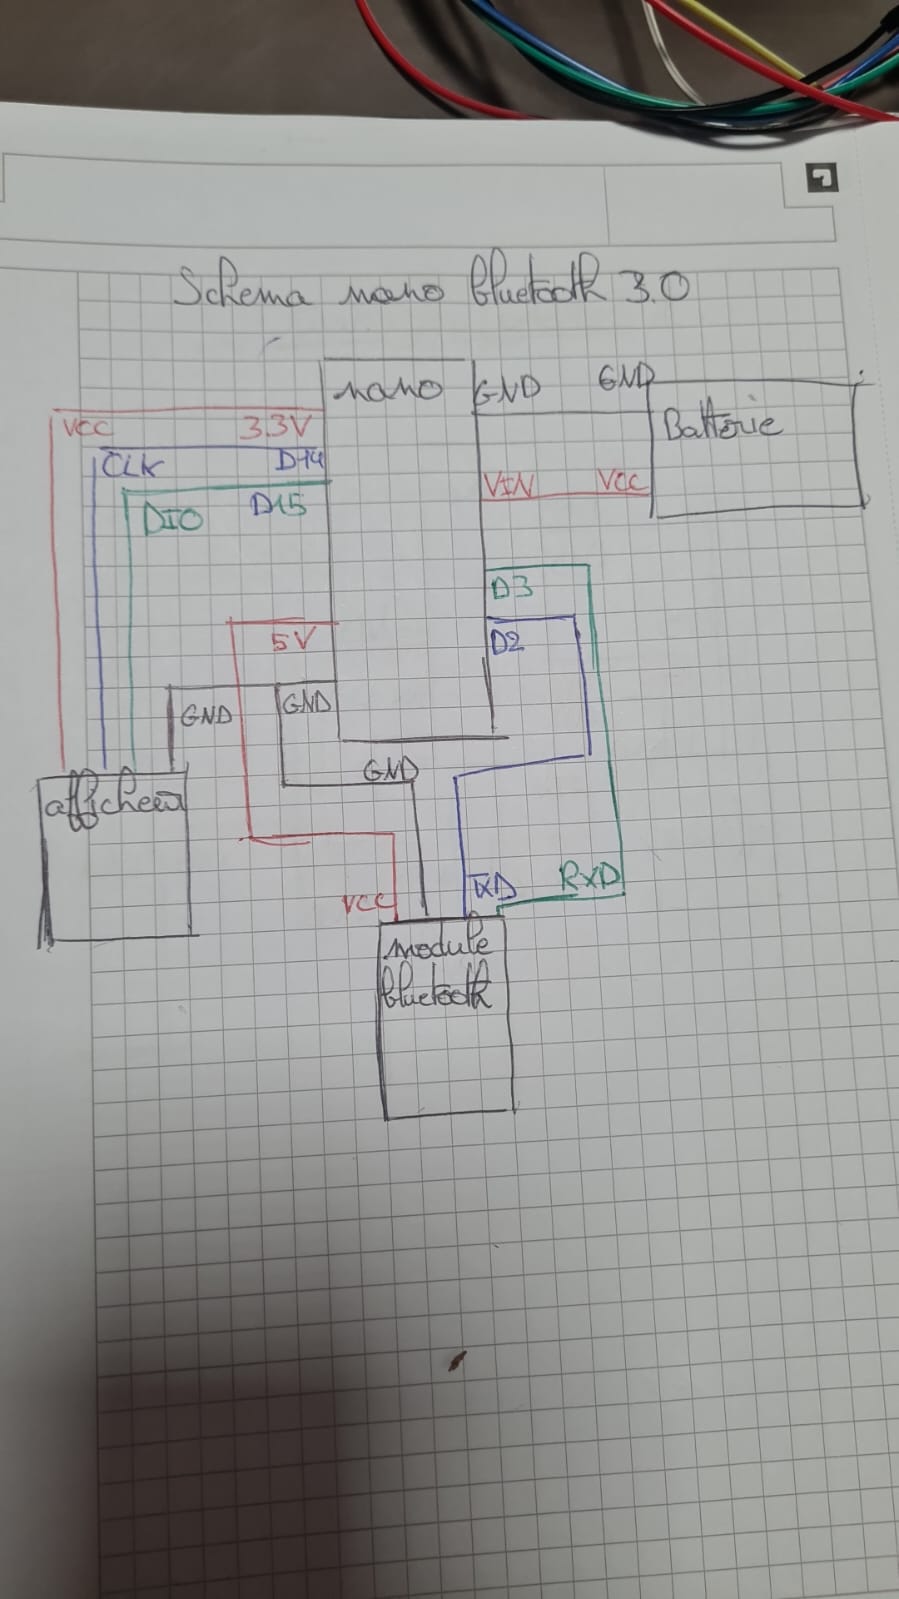 Schema nano bluetooth 3.0
nano
GND GND
Batterie
VCC 3.3V
CLK D14
DIO D15
VIN VCC
D3
D2
5V
GND GND
GND
afficheur
TXD RXD
VCC
module
bluetooth